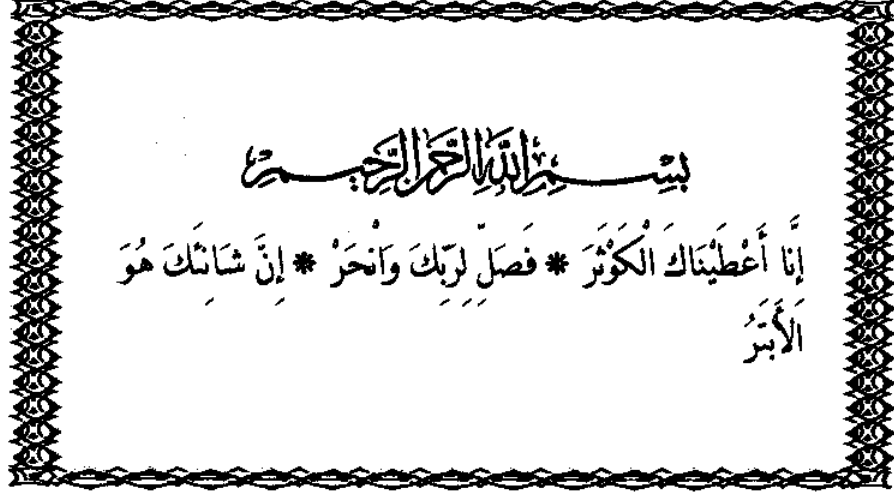 بِسْمِ اللَّهِ الرَّحْمَنِ الرَّحِيمِ
إِنَّا أَعْطَيْنَاكَ الْكَوْثَرَ * فَصَلِّ لِرَبِّكَ وَانْحَرْ * إِنَّ شَانِئَكَ هُوَ
الْأَبْتَرُ